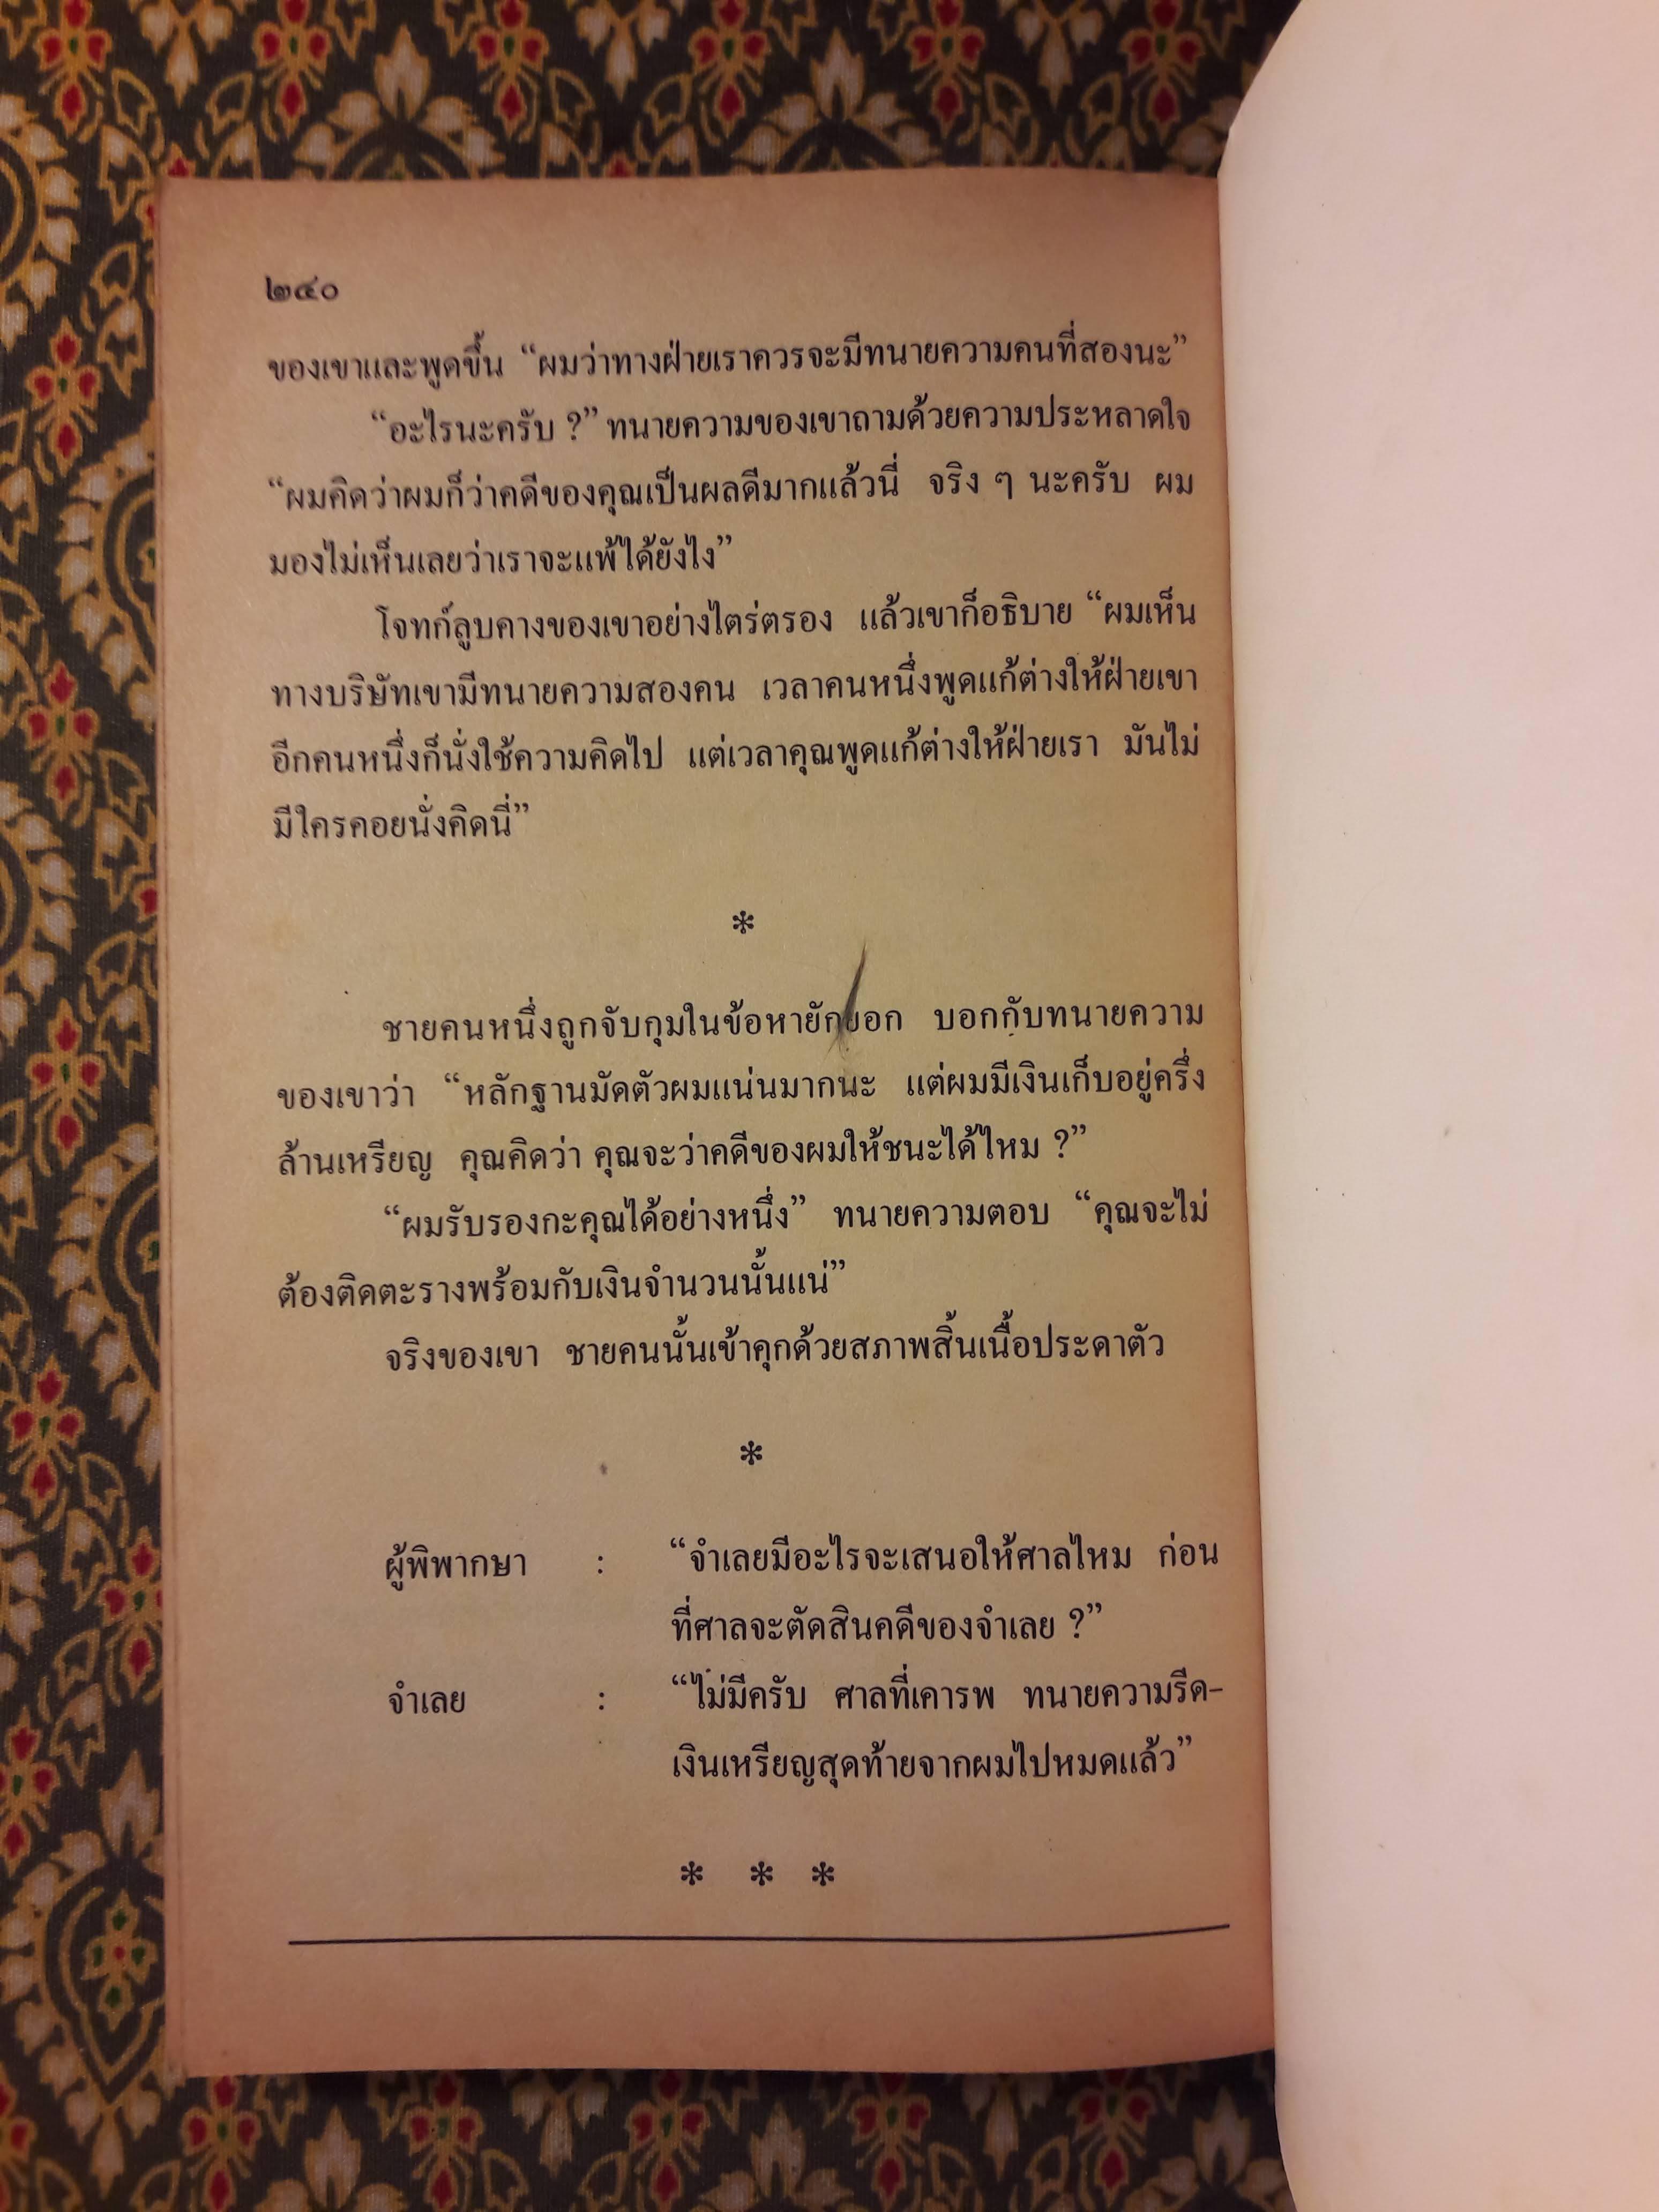 ๒๔๐
ของเขาและพูดขึ้น “ผมว่าทางฝ่ายเราควรจะมีทนายความคนที่สองนะ”
“อะไรนะครับ ?” ทนายความของเขาถามด้วยความประหลาดใจ
“ผมคิดว่าผมก็ว่าคดีของคุณเป็นผลดีมากแล้วนี่ จริง ๆ นะครับ ผม
มองไม่เห็นเลยว่าเราจะแพ้ได้ยังไง”
โจทก์ลูบคางของเขาอย่างไตร่ตรอง แล้วเขาก็อธิบาย “ผมเห็น
ทางบริษัทเขามีทนายความสองคน เวลาคนหนึ่งพูดแก้ต่างให้ฝ่ายเขา
อีกคนหนึ่งก็นั่งใช้ความคิดไป แต่เวลาคุณพูดแก้ต่างให้ฝ่ายเรา มันไม่
มีใครคอยนั่งคิดนี่”
*
ชายคนหนึ่งถูกจับกุมในข้อหายักยอก บอกกับทนายความ
ของเขาว่า “หลักฐานมัดตัวผมแน่นมากนะ แต่ผมมีเงินเก็บอยู่ครึ่ง
ล้านเหรียญ คุณคิดว่า คุณจะว่าคดีของผมให้ชนะได้ไหม ?”
“ผมรับรองกะคุณได้อย่างหนึ่ง” ทนายความตอบ “คุณจะไม่
ต้องติดตะรางพร้อมกับเงินจำนวนนั้นแน่”
จริงของเขา ชายคนนั้นเข้าคุกด้วยสภาพสิ้นเนื้อประดาตัว
*
ผู้พิพากษา : “จำเลยมีอะไรจะเสนอให้ศาลไหม ก่อน
ที่ศาลจะตัดสินคดีของจำเลย ?”
จำเลย : “ไม่มีครับ ศาลที่เคารพ ทนายความรีด-
เงินเหรียญสุดท้ายจากผมไปหมดแล้ว”
* * *